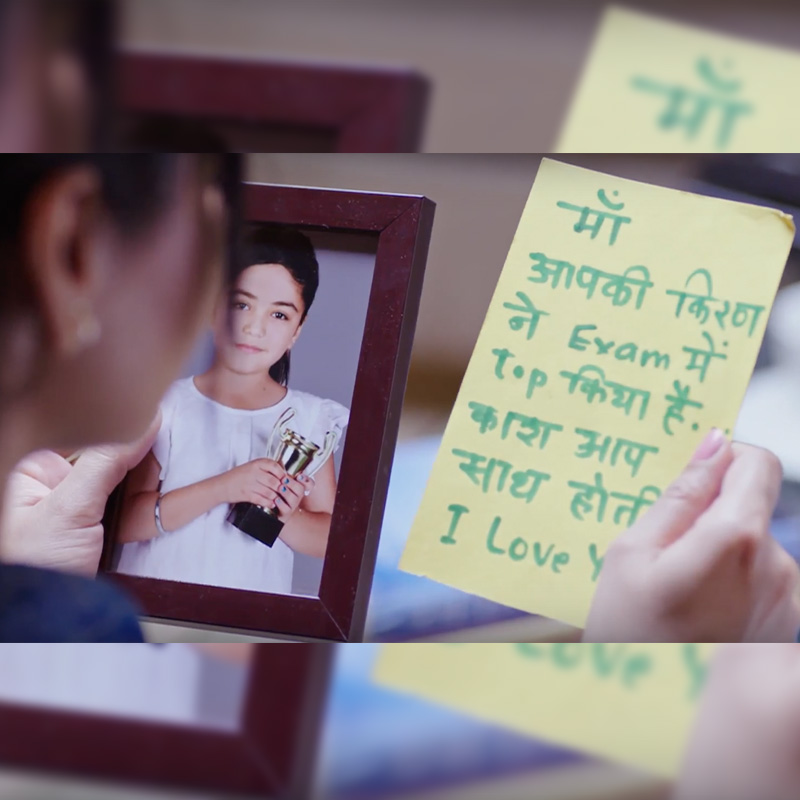 माँ
आपकी किरण
ने Exam में
top किया है.
काश आप
साथ होती
I Love